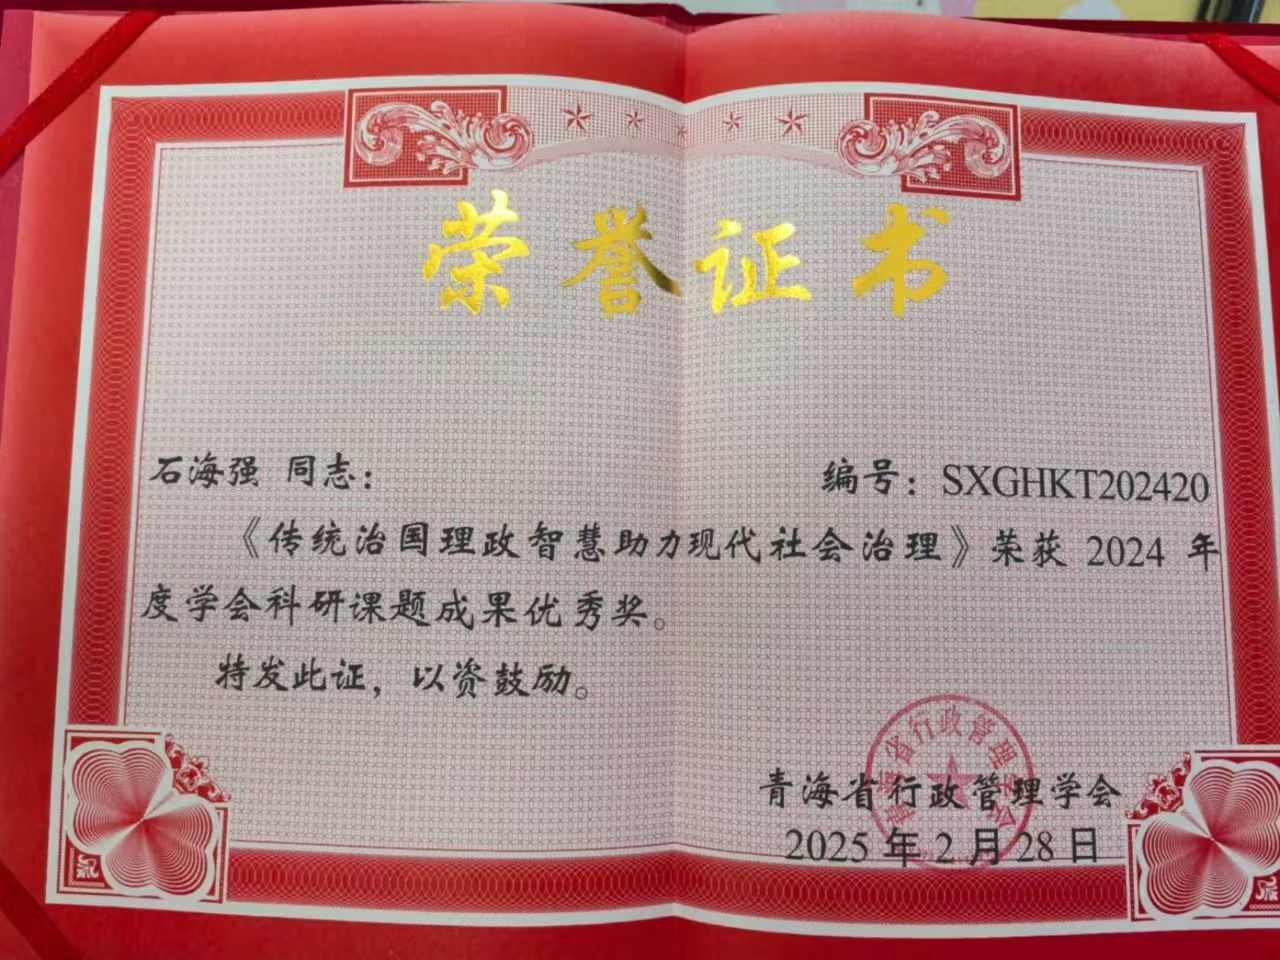 荣誉证书
石海强 同志： 编号：SXGHKT202420
《传统治国理政智慧助力现代社会治理》荣获 2024 年
度学会科研课题成果优秀奖。
特发此证，以资鼓励。
青海省行政管理学会
青海省行政管理学会
2025 年 2 月 28 日